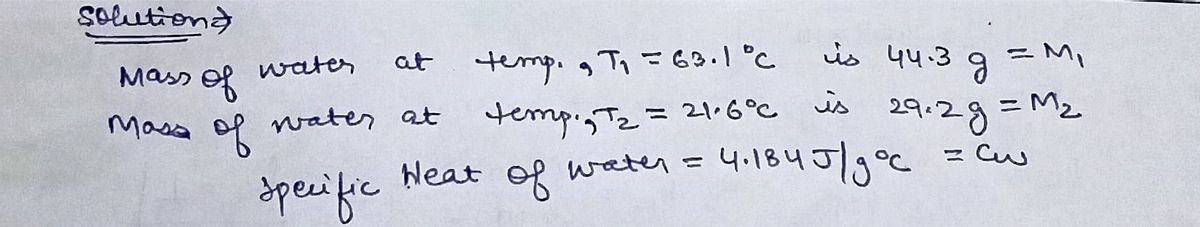 Solution⇒
Mass of water at temp., T₁ = 63.1°C is 44.3 g = M₁
Mass of water at temp., T₂ = 21.6°C is 29.2 g = M₂
Specific Heat of water = 4.184 J/g°C = Cw